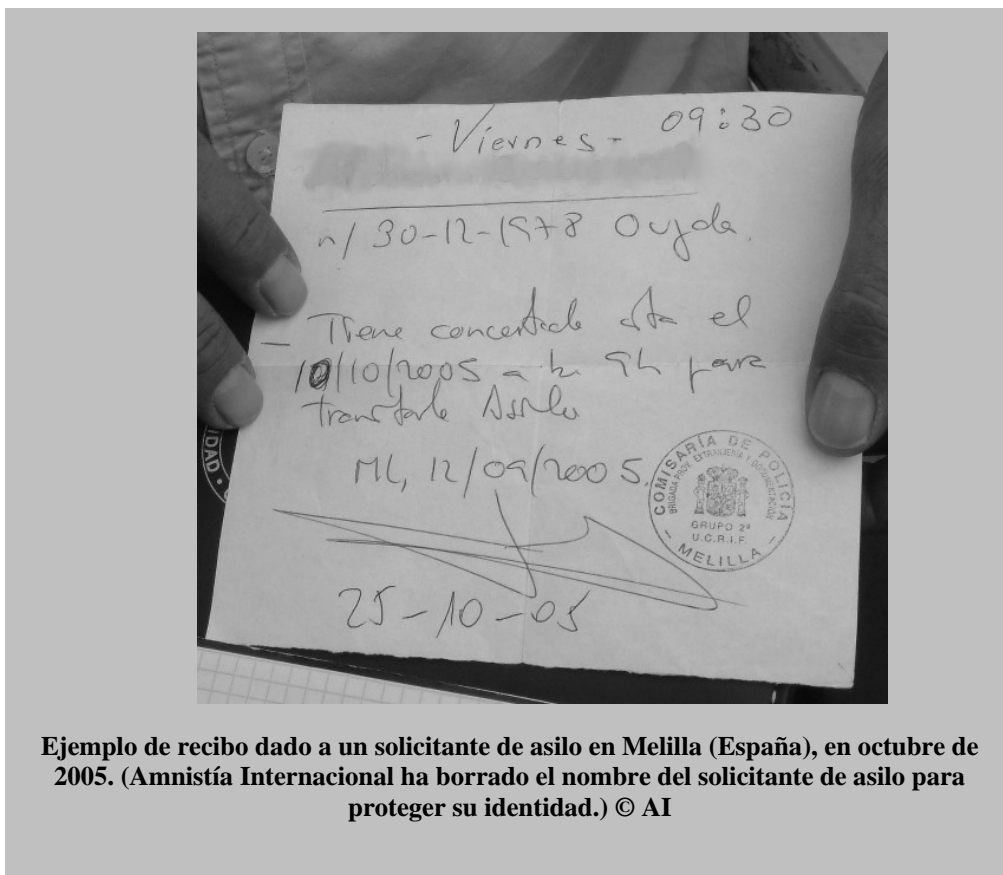 - Viernes - 09:30
n/ 30-12-1978 Oujda.
- Tiene concertada cita el
10/10/2005 a las 9h para
tramitarle Asilo
ML, 12/09/2005.
COMISARÍA DE POLICÍA
BRIGADA PROV. EXTRANJERÍA Y DOCUMENTACIÓN
GRUPO 2ª
U.C.R.I.F.
- MELILLA -
25-10-05
Ejemplo de recibo dado a un solicitante de asilo en Melilla (España), en octubre de
2005. (Amnistía Internacional ha borrado el nombre del solicitante de asilo para
proteger su identidad.) © AI